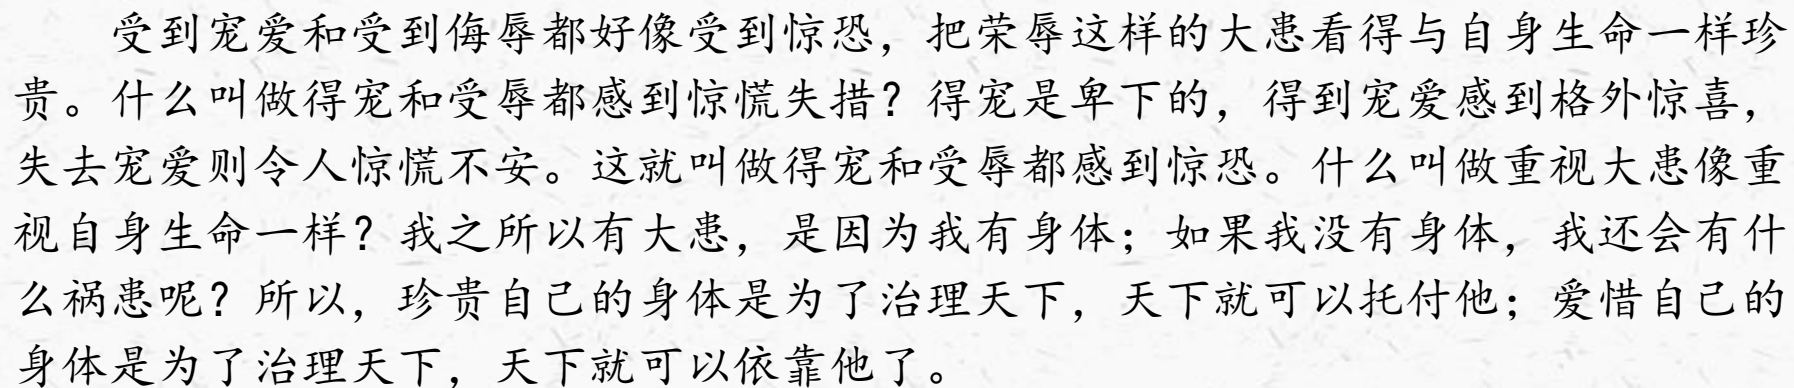 受到宠爱和受到侮辱都好像受到惊恐，把荣辱这样的大患看得与自身生命一样珍
贵。什么叫做得宠和受辱都感到惊慌失措？得宠是卑下的，得到宠爱感到格外惊喜，
失去宠爱则令人惊慌不安。这就叫做得宠和受辱都感到惊恐。什么叫做重视大患像重
视自身生命一样？我之所以有大患，是因为我有身体；如果我没有身体，我还会有什
么祸患呢？所以，珍贵自己的身体是为了治理天下，天下就可以托付他；爱惜自己的
身体是为了治理天下，天下就可以依靠他了。